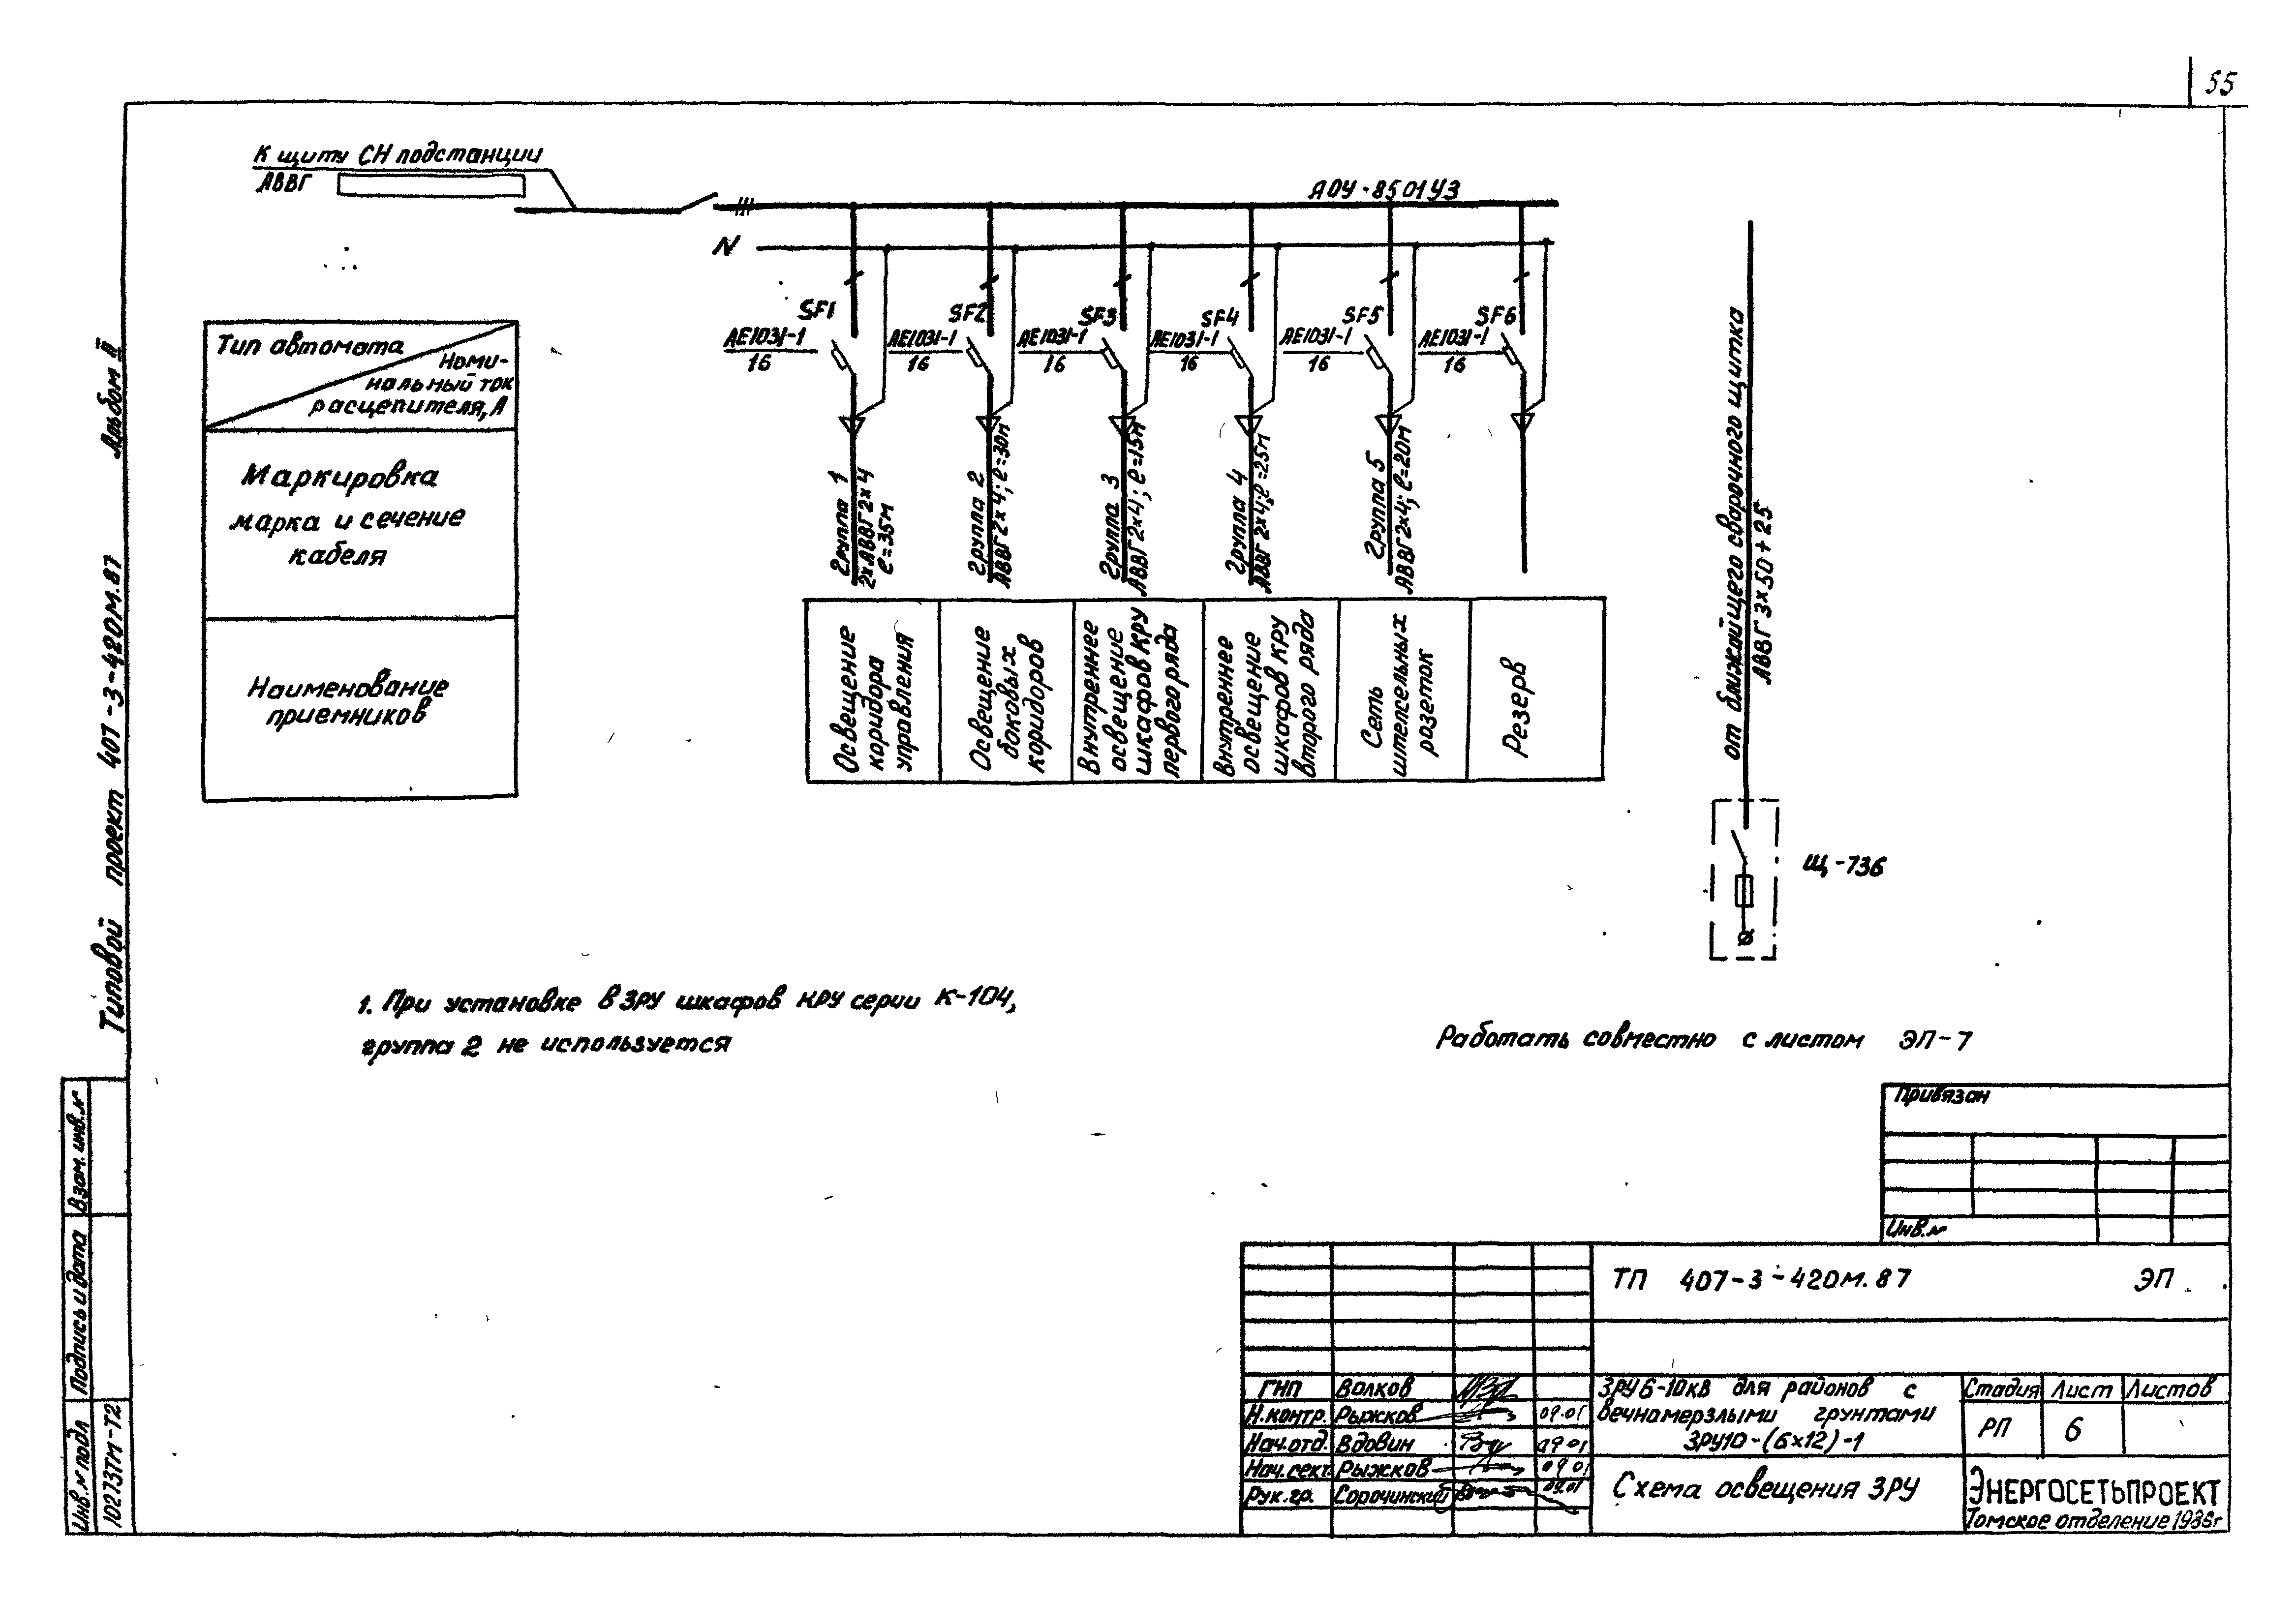 55
К щиту СН подстанции
АВВГ
ЯОУ-8501У3
N
SF1
SF2
SF3
SF4
SF5
SF6
АЕ1031-1
16
АЕ1031-1
16
АЕ1031-1
16
АЕ1031-1
16
АЕ1031-1
16
АЕ1031-1
16
Тип автомата
Номи-
нальный ток
расцепителя, А
Маркировка
марка и сечение
кабеля
Наименование
приемников
Группа 1
2×АВВГ2×4
ℓ=35м
Группа 2
АВВГ2×4; ℓ=30м
Группа 3
АВВГ2×4; ℓ=15м
Группа 4
АВВГ2×4; ℓ=25м
Группа 5
АВВГ2×4; ℓ=20м
Освещение
коридора
управления
Освещение
боковых
коридоров
Внутреннее
освещение
шкафов КРУ
первого ряда
Внутреннее
освещение
шкафов КРУ
второго ряда
Сеть
штепсельных
розеток
Резерв
от ближайщего сварочного щитка
АВВГ 3×50+25
Щ-736
1. При установке в ЗРУ шкафов КРУ серии К-104,
группа 2 не используется
Работать совместно с листом ЭП-7
Типовой проект 407-3-420м.87 Альбом II
Взам. инв. №
Подпись и дата
Инв. № подл
10273тм-т2
Привязан
Инв. №
ТП 407-3-420м.87 ЭП
ГНП Волков
Н.контр. Рыжков 09.01
Нач.отд. Вдовин 09 01
Нач.сект. Рыжков 09 01
Рук.гр. Сорочинский 09.01
ЗРУ6-10кВ для районов с
вечномерзлыми грунтами
ЗРУ10-(6×12)-1
Стадия Лист Листов
РП 6
Схема освещения ЗРУ
ЭНЕРГОСЕТЬПРОЕКТ
Томское отделение 1988г